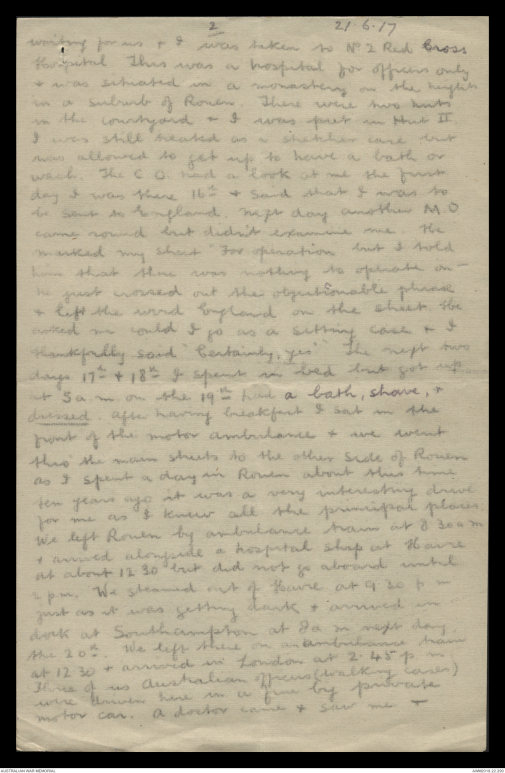 2 21.6.17
waiting for us & I was taken to No 2 Red Cross
Hospital This was a hospital for officers only
& was situated in a monastery on the heights
in a suburb of Rouen. There were two huts
in the courtyard & I was put in Hut II.
I was still treated as a stretcher case but
was allowed to get up to have a bath or
wash. The C.O. had a look at me the first
day I was there 16th & said that I was to
be sent to England. Next day another M.O
came round but didn't examine me. He
marked my sheet "For operation" but I told
him that there was nothing to operate on —
he just crossed out the objectionable phrase
& left the word England on the sheet. He
asked me could I go as a sitting case & I
thankfully said "Certainly, yes" The next two
days 17th & 18th I spent in bed but got up
at 5 a.m. on the 19th had a bath, shave, &
dressed. After having breakfast I sat in the
front of the motor ambulance & we went
thro' the main streets to the other side of Rouen
as I spent a day in Rouen about this time
ten years ago it was a very interesting drive
for me as I knew all the principal places.
We left Rouen by ambulance train at 8 30 a m
& arrived alongside a hospital ship at Havre
at about 12 30 but did not go aboard until
2 p.m. We steamed out of Havre at 9 30 p m
just as it was getting dark & arrived in
dock at Southampton at a m next day
the 20th. We left there on an ambulance train
at 12 30 & arrived in London at 2.45 p.m.
Three of us Australian officers (walking cases)
were driven here in a fine big private
motor car. A doctor came & saw me —
AUSTRALIAN WAR MEMORIAL